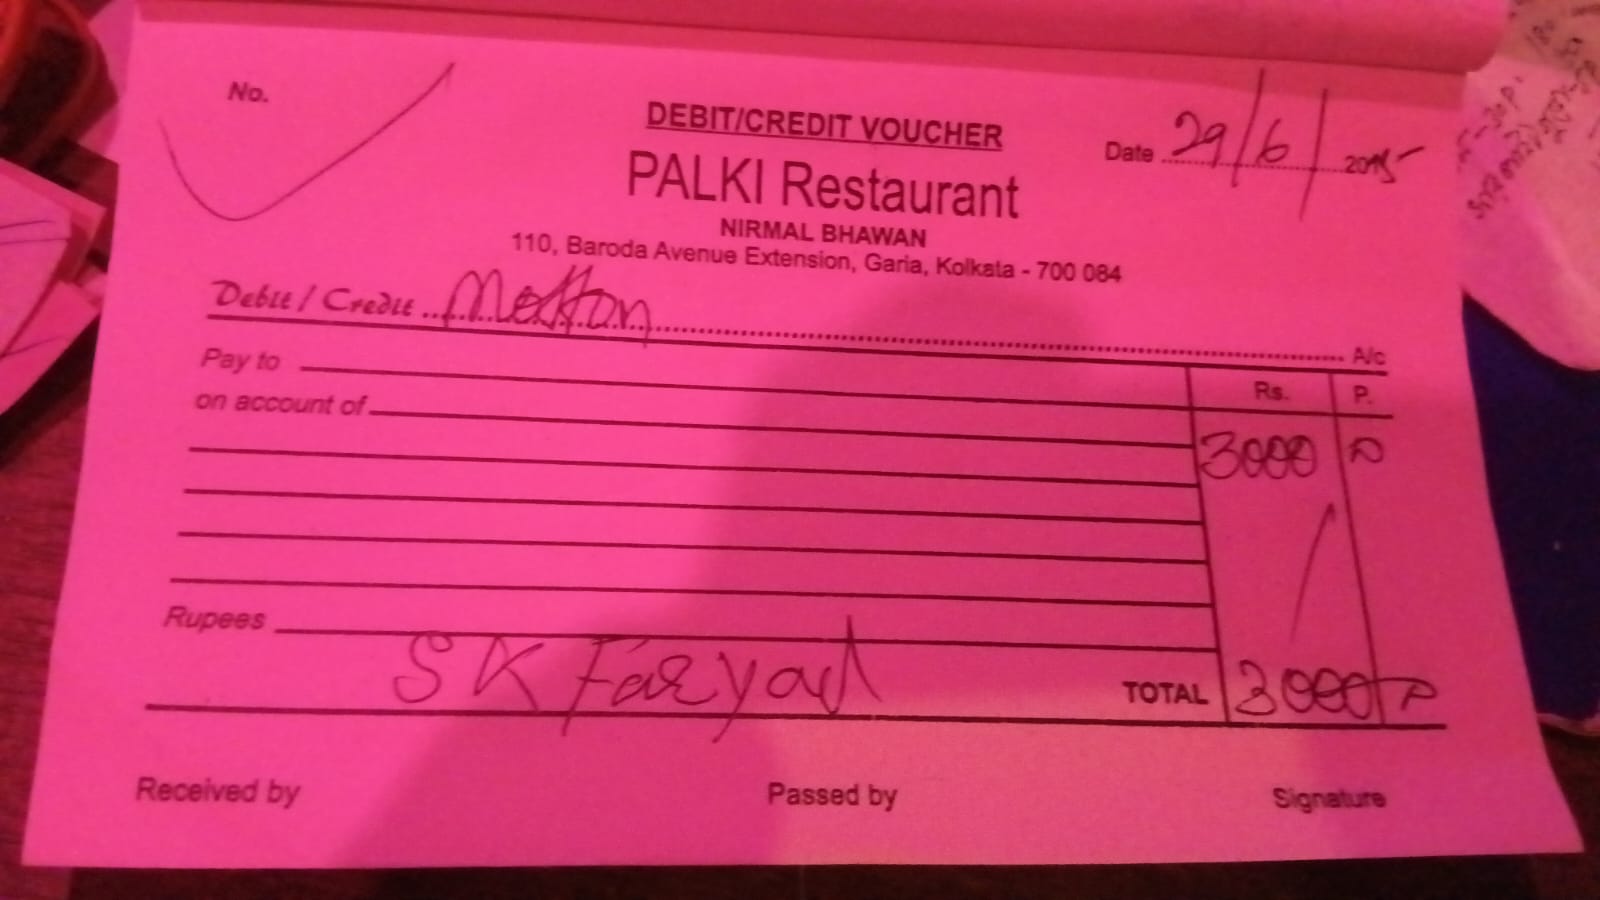 No.
DEBIT/CREDIT VOUCHER
Date 29/6/2015
PALKI Restaurant
NIRMAL BHAWAN
110, Baroda Avenue Extension, Garia, Kolkata - 700 084
Debit / Credit Motton A/c
Pay to
Rs. P.
on account of
3000
Rupees
SK Faryad
TOTAL 3000
Received by Passed by Signature